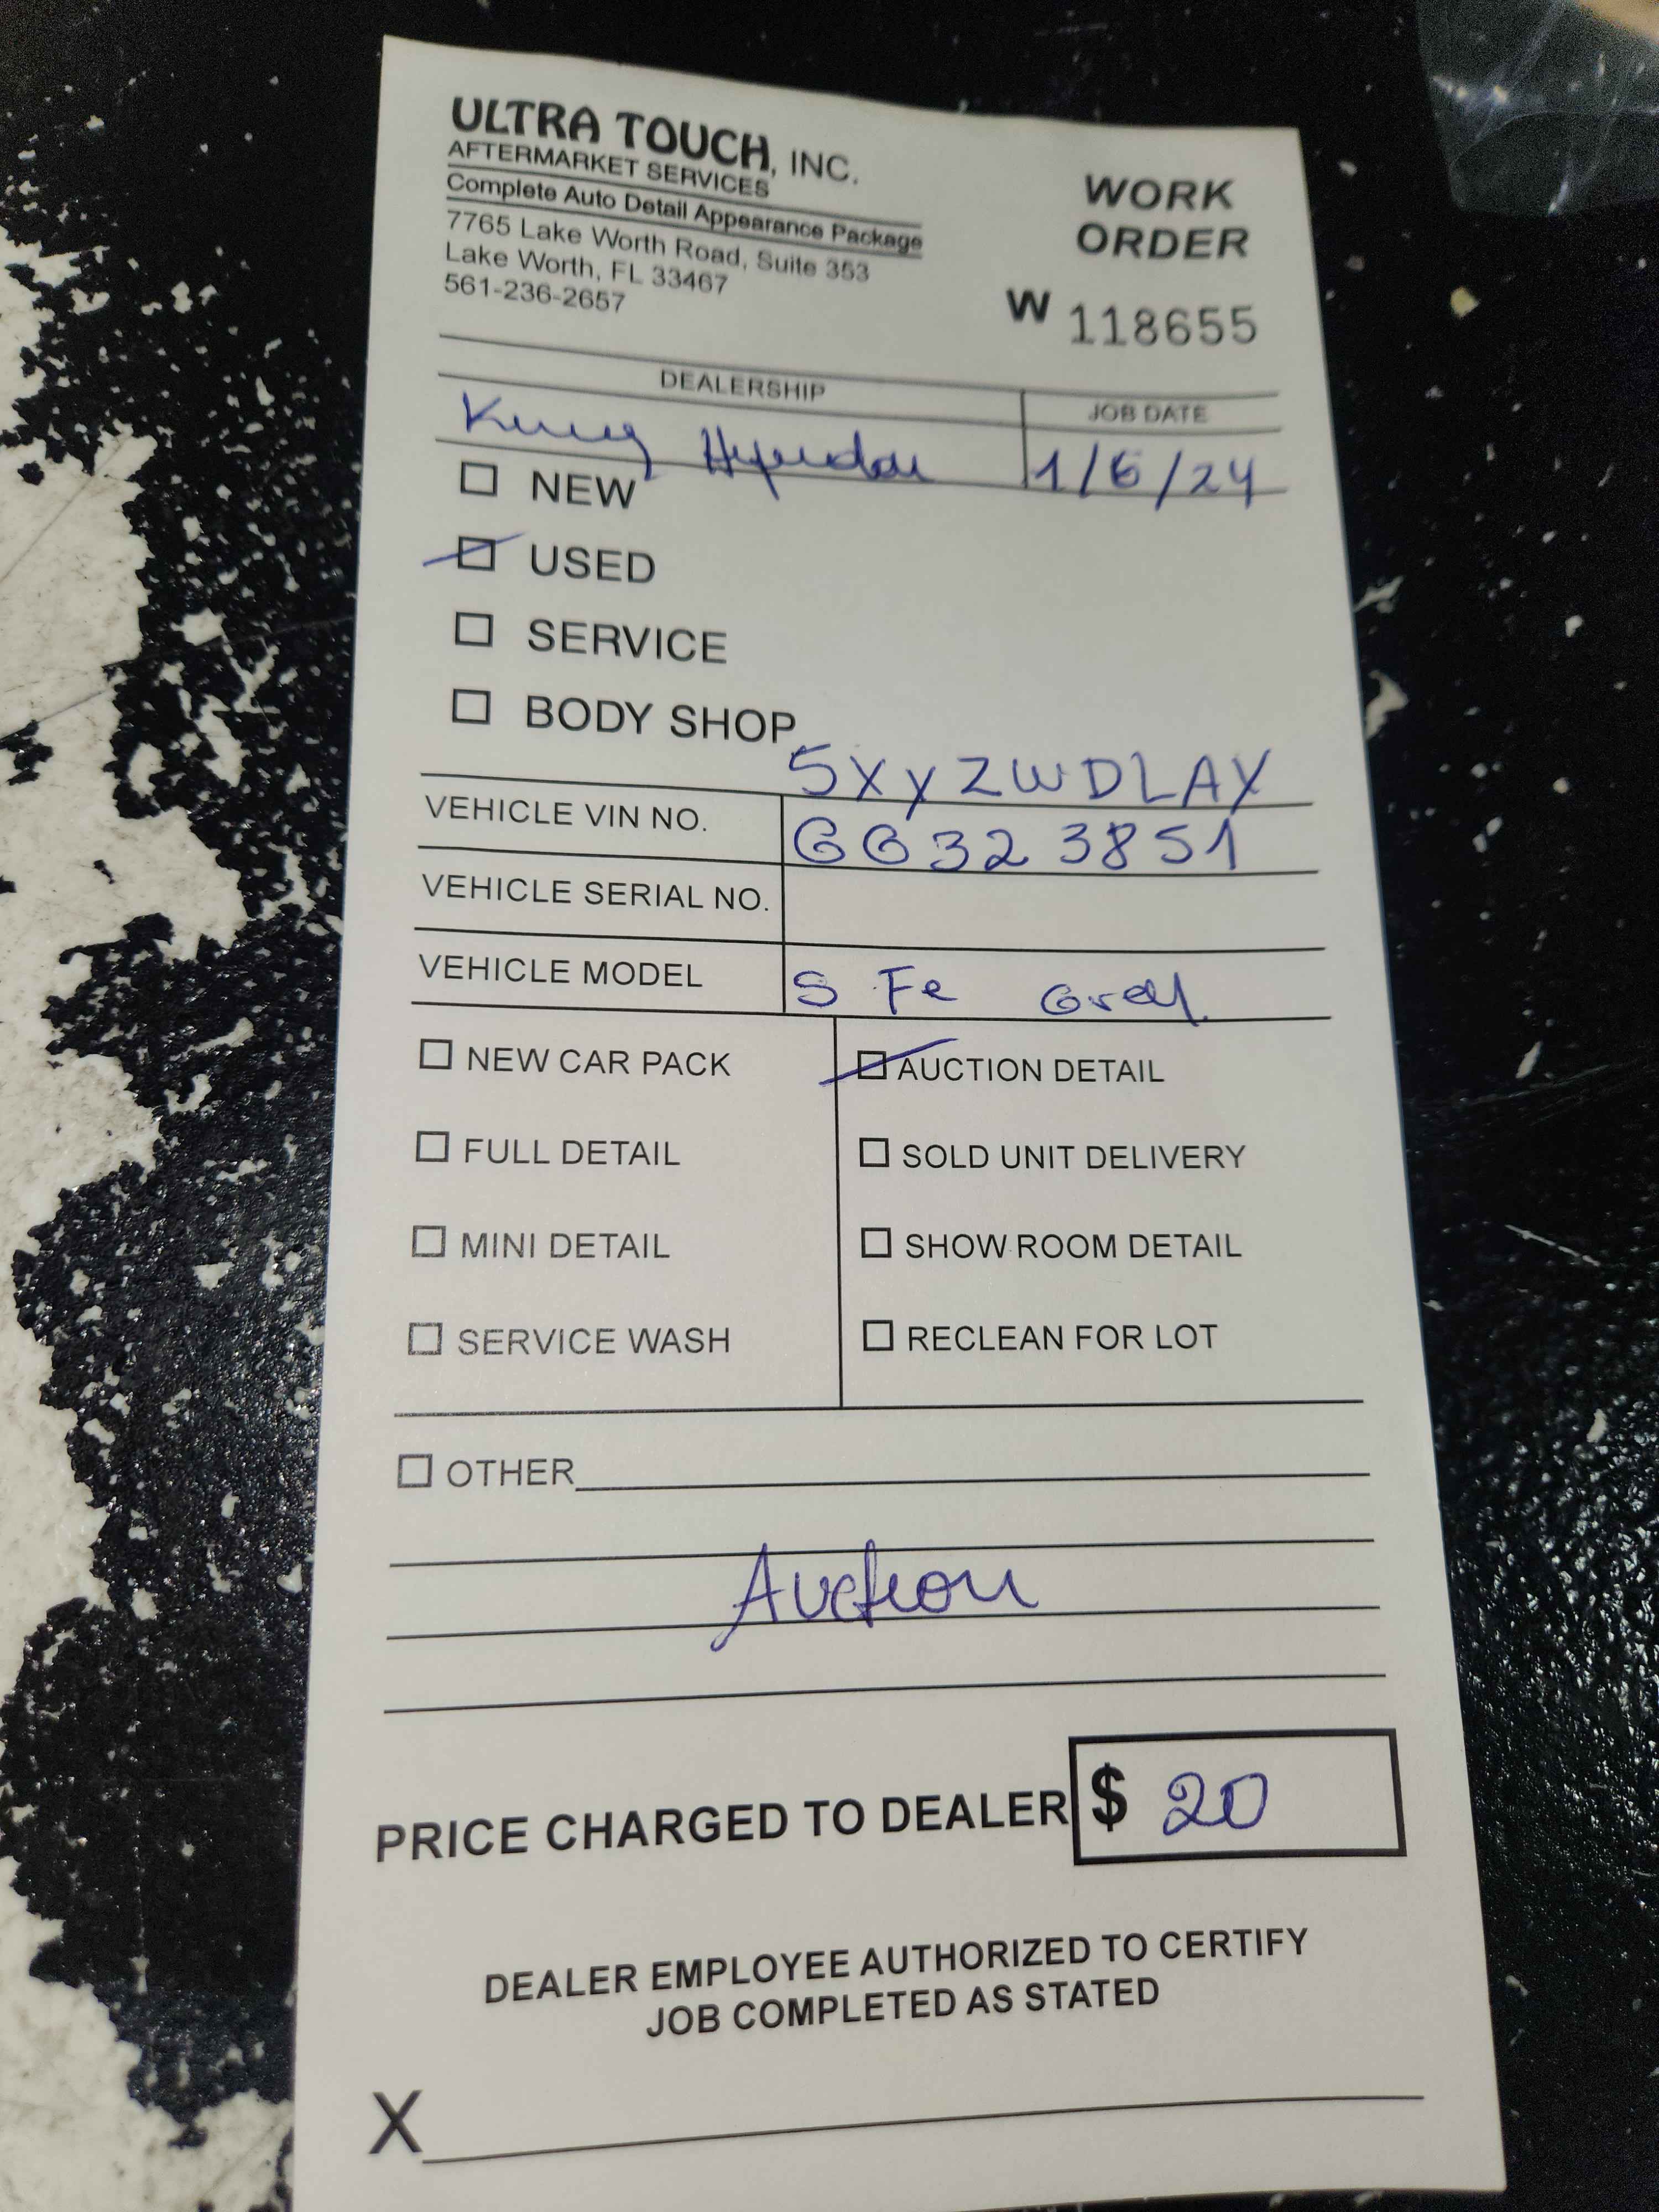 ULTRA TOUCH, INC.
AFTERMARKET SERVICES
Complete Auto Detail Appearance Package
7765 Lake Worth Road, Suite 353
Lake Worth, FL 33467
561-236-2657
WORK
ORDER
W 118655
DEALERSHIP
JOB DATE
Hyundai
1/6/24
NEW
USED
SERVICE
BODY SHOP
5XyZWDLAX
VEHICLE VIN NO.
GG323851
VEHICLE SERIAL NO.
VEHICLE MODEL
S Fe Gray
NEW CAR PACK
AUCTION DETAIL
FULL DETAIL
SOLD UNIT DELIVERY
MINI DETAIL
SHOW ROOM DETAIL
SERVICE WASH
RECLEAN FOR LOT
OTHER
Auction
PRICE CHARGED TO DEALER $ 20
DEALER EMPLOYEE AUTHORIZED TO CERTIFY
JOB COMPLETED AS STATED
X